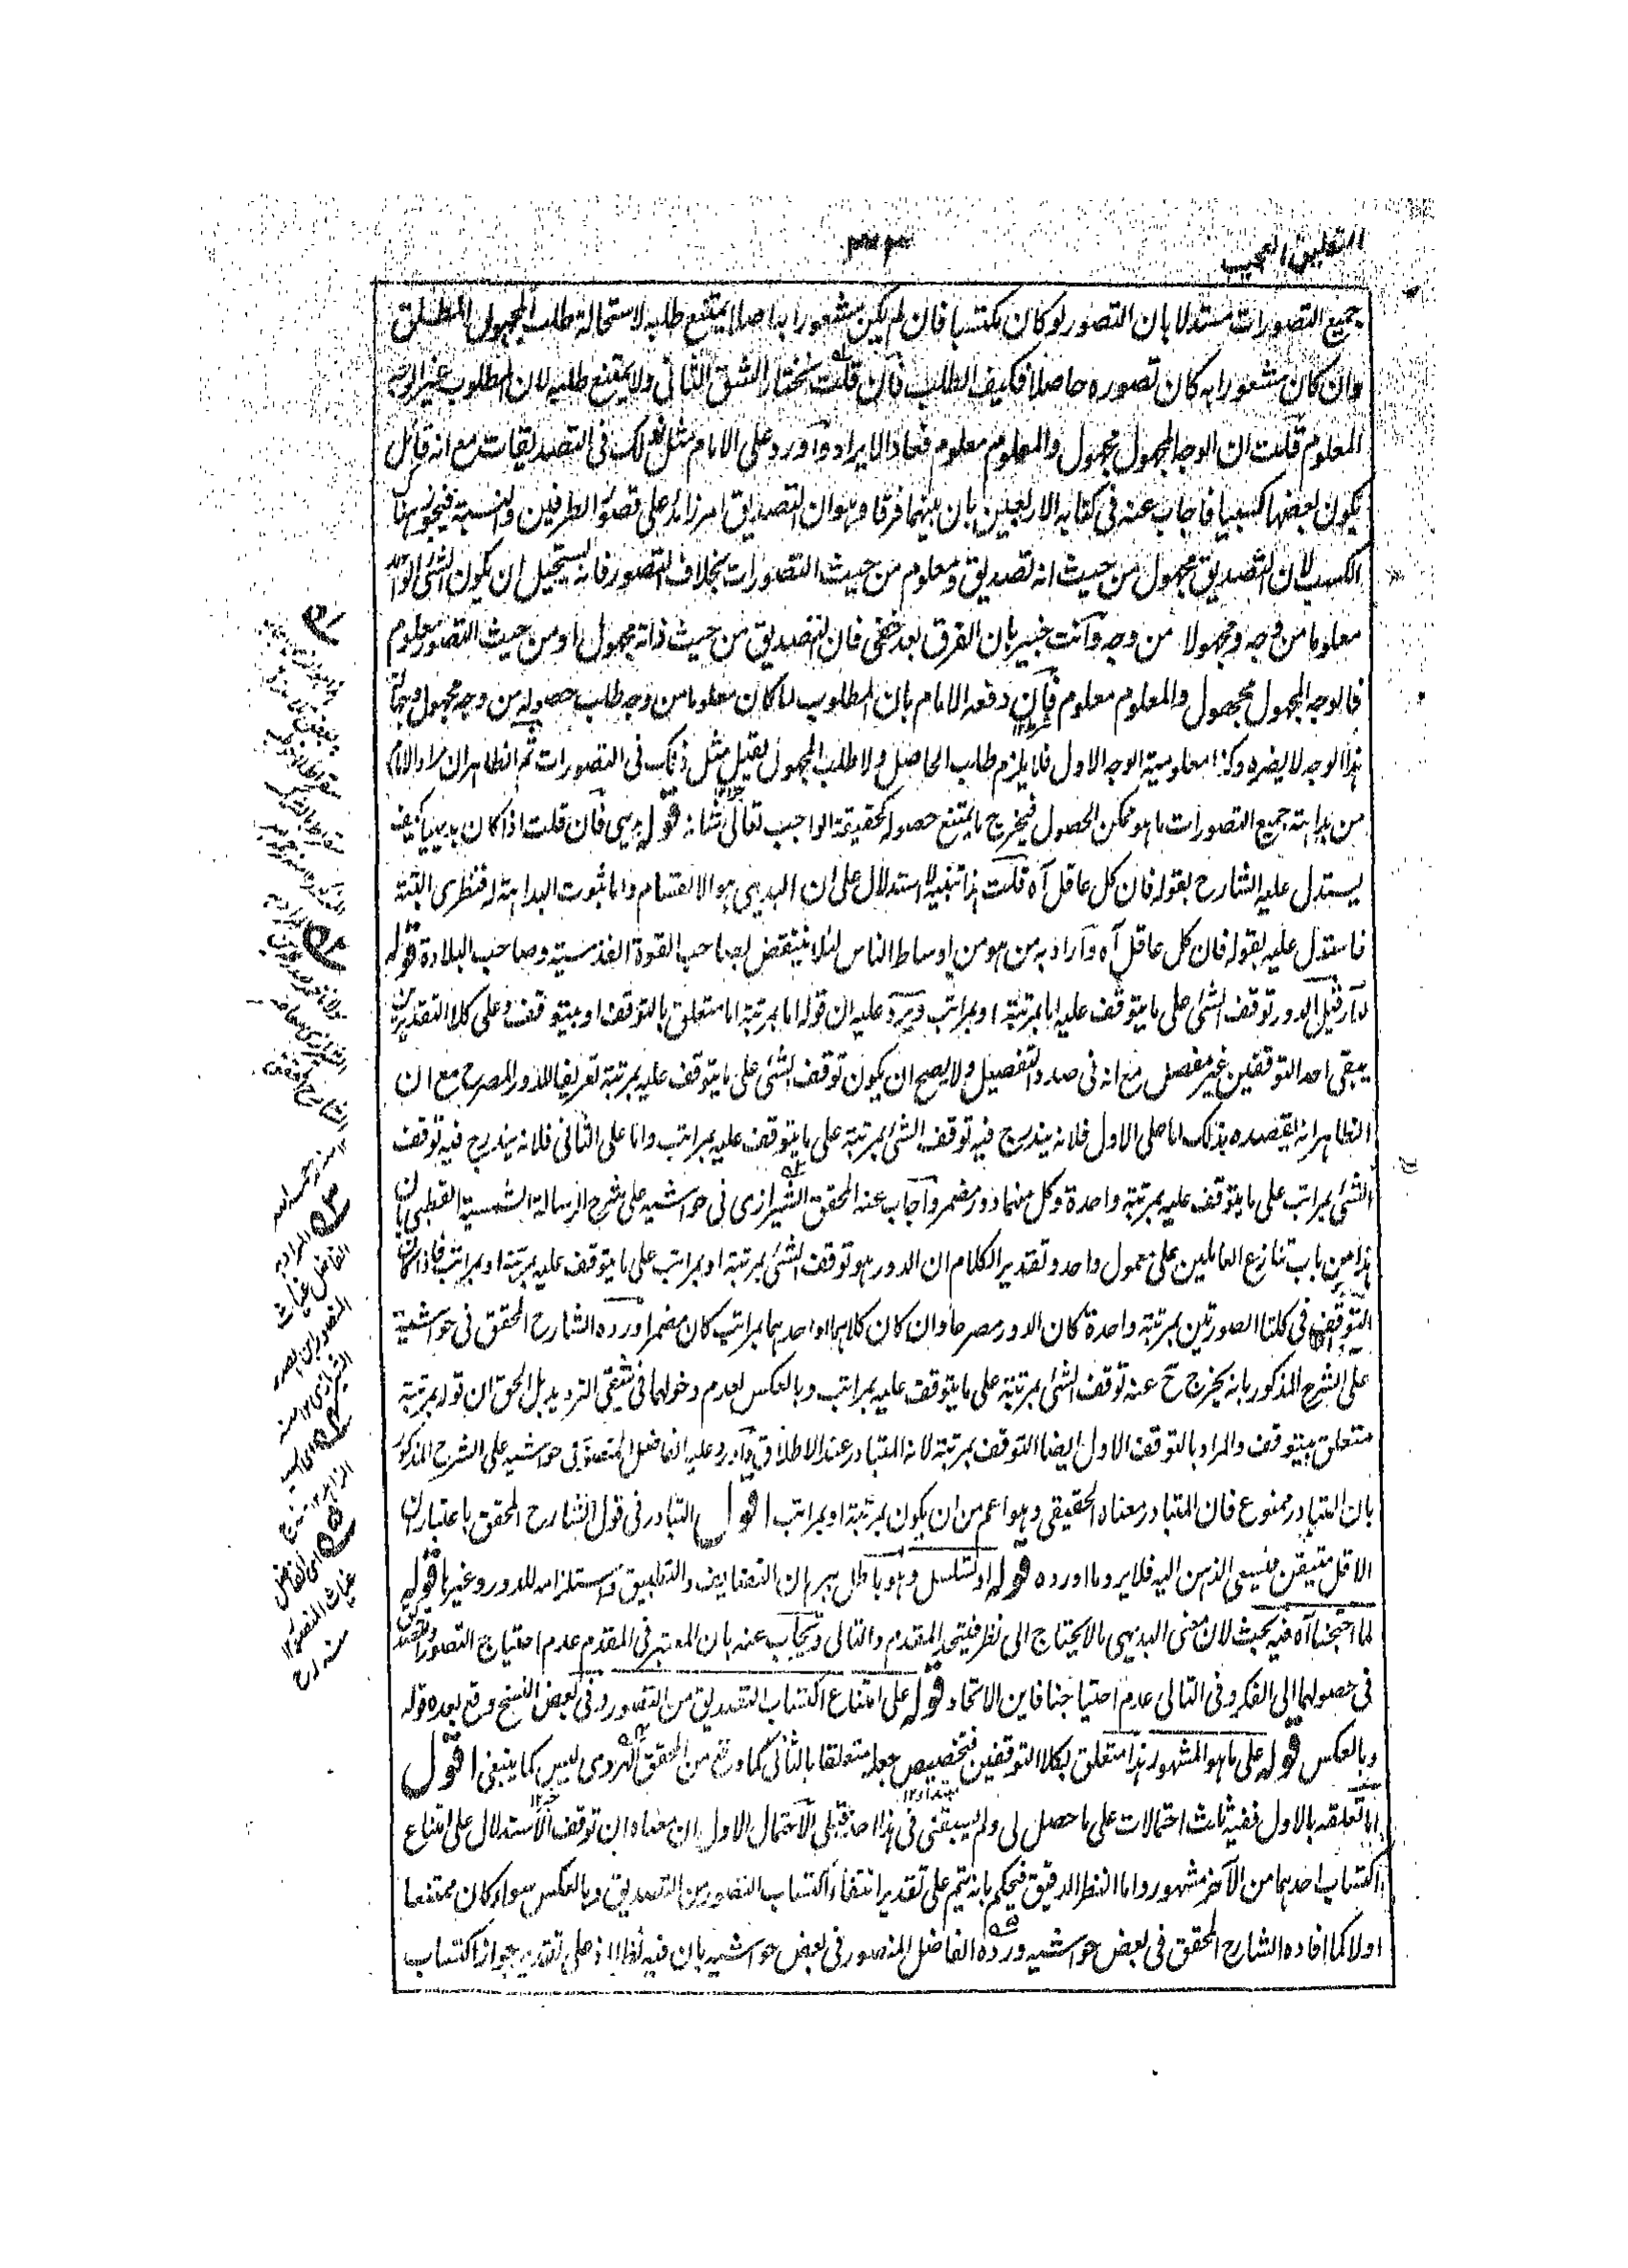 التعليق العجيب
جميع التصورات مستدلا بان التصور لو كان مكتسبا فان لم يكن مشعورا به اصلا يمتنع طلبه لاستحالة طلب المجهول المطلق
وان كان مشعورا به كان تصوره حاصلا فكيف الطلب فان قلت نختار الشق الثانى ولا يمتنع طلبه لان المطلوب غير الوجه
المعلوم قلت ان الوجه المجهول مجهول والمعلوم معلوم فعاد الايراد واورد على الامام مثل ذلك فى التصديقات مع انه قائل
بكون بعضها كسبيا فاجاب عنه فى كتابه الاربعين بان بينهما فرقا وهو ان التصديق امر زائد على تصور الطرفين والنسبة فيجوز هنا
الكسب لان التصديق مجهول من حيث انه تصديق ومعلوم من حيث التصورات بخلاف التصور فانه يستحيل ان يكون الشئ الواحد
معلوما من وجه ومجهولا من وجه وانت خبير بان الفرق بعد خفى فان التصديق من حيث ذاته مجهول او من حيث التصور معلوم
فالوجه المجهول مجهول والمعلوم معلوم فان دفعه الامام بان المطلوب لما كان معلوما من وجه طلب حصوله من وجه مجهول وجهالة
هذا الوجه لا يضره وكذا معلومية الوجه الاول فلا يلزم طلب الحاصل ولا طلب المجهول لقيل مثل ذلك فى التصورات ثم الظاهر ان مراد الامام
من بداهة جميع التصورات ما هو ممكن الحصول فيخرج ما يمتنع حصوله كحقيقة الواجب تعالى شانه قوله بديهى فان قلت اذا كان بديهيا كيف
يستدل عليه الشارح بقوله فان كل عاقل آه قلت هذا تنبيه لا استدلال على ان البديهى هو الانقسام واما ثبوت البداهة له فنظرى البتة
فاستدل عليه بقوله فان كل عاقل آه واراد به من هو من اوساط الناس لئلا ينتقض بصاحب القوة القدسية وصاحب البلادة قوله
دار قيل الدور توقف الشئ على ما يتوقف عليه اما بمرتبة او بمراتب ويرد عليه ان قوله اما بمرتبة اما متعلق بالتوقف او بيتوقف وعلى كلا التقديرين
يبقى احد التوقفين غير مفصل مع انه فى صدد التفصيل ولا يصح ان يكون توقف الشئ على ما يتوقف عليه بمرتبة تعريفا للدور المصرح مع ان
الظاهر انه يقصده بذلك اما على الاول فلانه يندرج فيه توقف الشئ بمرتبة على ما يتوقف عليه بمراتب واما على الثانى فلانه يندرج فيه توقف
الشئ بمراتب على ما يتوقف عليه بمرتبة واحدة وكل منهما دور مضمر واجاب عنه المحقق الشيرازى فى حواشيه على شرح الرسالة الشمسية القطبى بان
هذا من باب تنازع العاملين على معمول واحد وتقدير الكلام ان الدور هو توقف الشئ بمرتبة او بمراتب على ما يتوقف عليه بمرتبة او بمراتب فاذا كان
التوقف فى كلتا الصورتين بمرتبة واحدة كان الدور مصرحا وان كان كلاهما او احدهما بمراتب كان مضمرا ورده الشارح المحقق فى حواشية
على الشرح المذكور بانه يخرج ح عنه توقف الشئ بمرتبة على ما يتوقف عليه بمراتب وبالعكس لعدم دخولهما فى شقى الترديد بل الحق ان قوله بمرتبة
متعلق بيتوقف والمراد بالتوقف الاول ايضا التوقف بمرتبة لانه المتبادر عند الاطلاق واورد عليه الفاضل المنصور فى حواشيه على الشرح المذكور
بان التبادر ممنوع فان المتبادر معناه الحقيقى وهو اعم من ان يكون بمرتبة او بمراتب اقول التبادر فى قول الشارح المحقق باعتبار ان
الاقل متيقن فيسعى الذهن اليه فلا يرد ما اورده قوله او تسلسل وهو باطل ببرهان التضايف والتطبيق واستلزامه للدور وغيرها قوله
لما احتجنا آه فيه بحث لان معنى البديهى ما لا يحتاج الى نظر فيتحد المقدم والتالى ويجاب عنه بان المعتبر فى المقدم عدم احتياج التصور والتصديق
فى حصولهما الى الفكر وفى التالى عدم احتياجنا فاين الاتحاد قوله على امتناع اكتساب التصديق من التصور وفى بعض النسخ وقع بعده قوله
وبالعكس قوله على ما هو المشهور هذا متعلق بكلا التوقفين فتخصيص جعله متعلقا بالثانى كما وقع من المحقق الهروى ليس كما ينبغى اقول
اما تعلقه بالاول ففيه ثلث احتمالات على ما حصل لى ولم يسبقنى فى هذا احد قبلى الاحتمال الاول ان معناه ان توقف الاستدلال على امتناع
اكتساب احدهما من الآخر مشهور واما النظر الدقيق فيحكم بانه يتم على تقدير انتفاء اكتساب التصور من التصديق وبالعكس سواء كان ممتنعا
اولا كما افاده الشارح المحقق فى بعض حواشيه ورده الفاضل المنصور فى بعض حواشيه بان فيه نظرا اذ على تقدير جواز اكتساب
المراد به
الفاضل غياث
المنصور ابن الصدر
الشيرازى ١٢ منه
اى السيد
الزاهد ١٢ منه
اى الفاضل
غياث المنصور ١٢
منه رح